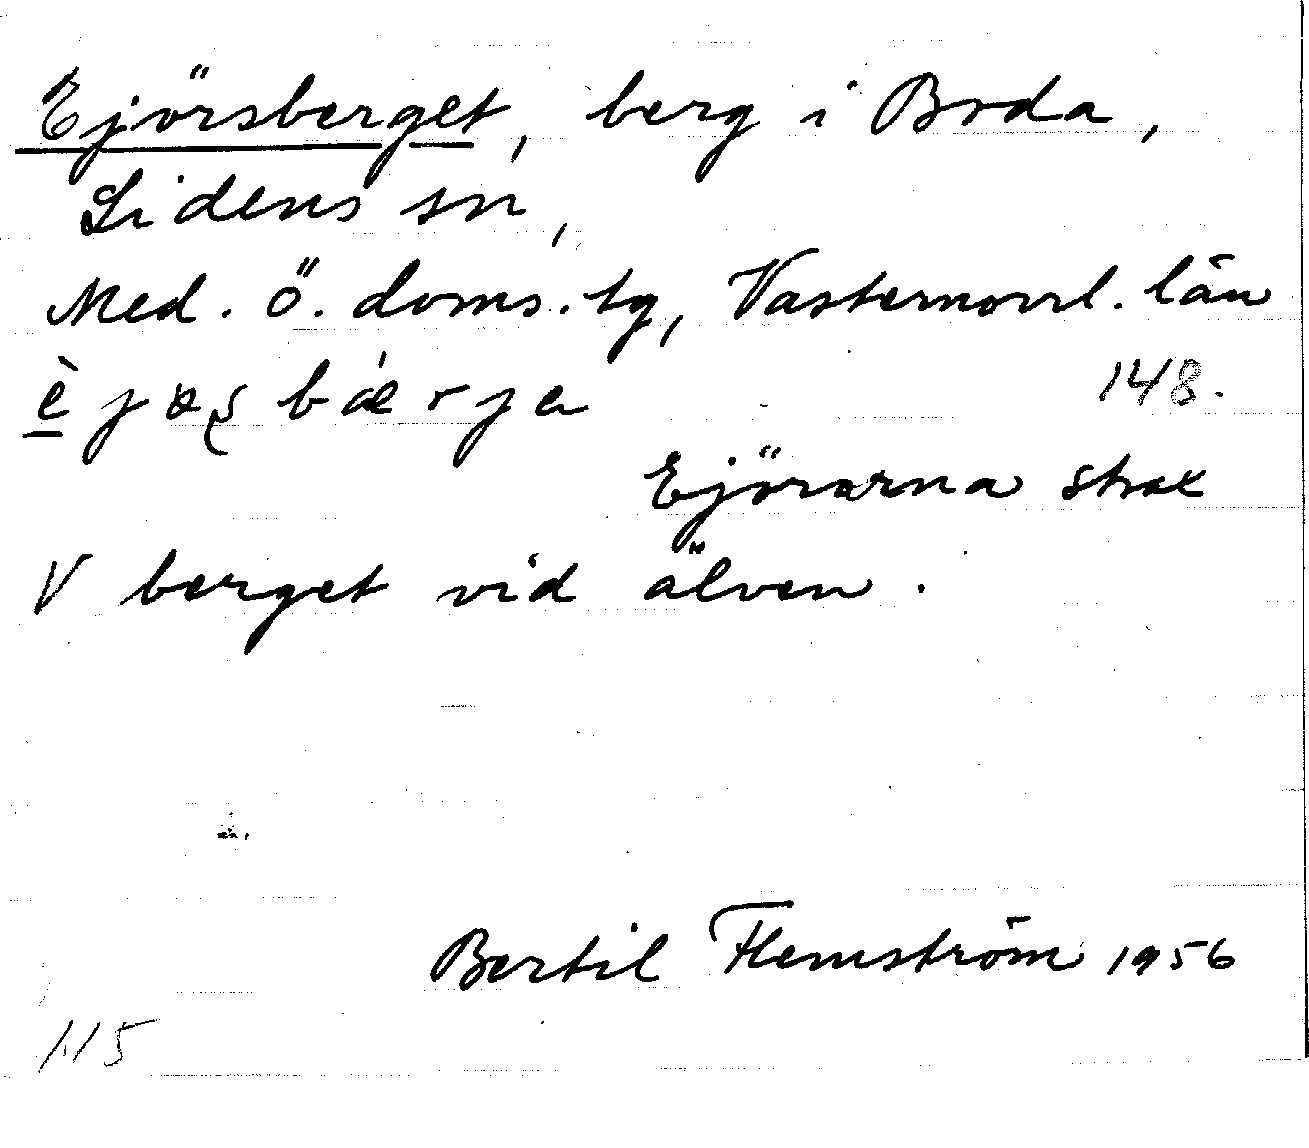 Ejörsberget, berg i Boda,
Lidens sn,
Med. Ö. doms. tg, Västernorrl. län
148.
Ejörarna strax
V berget vid älven.
Bertil Flemström 1956
115